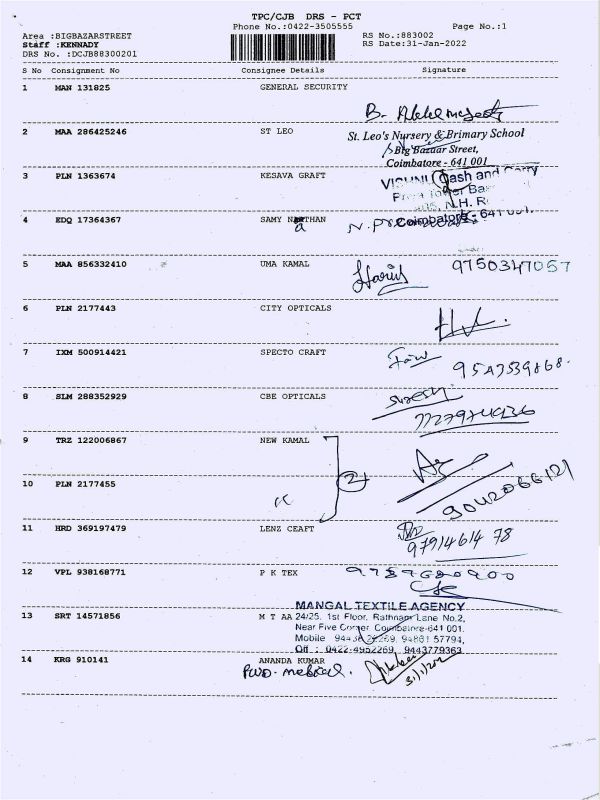 TPC/CJB DRS - PCT
Phone No.:0422-3505555 Page No.:1
Area :BIGBAZARSTREET RS No.:883002
Staff :KENNADY RS Date:31-Jan-2022
DRS No. :DCJB88300201
S No Consignment No Consignee Details Signature
1 MAN 131825 GENERAL SECURITY
B.
2 MAA 286425246 ST LEO St. Leo's Nursery & Brimary School
Big Bazaar Street,
Coimbatore - 641 001
3 PLN 1363674 KESAVA GRAFT VISHNU Cash and Carry
N.H. R
4 EDQ 17364367 SAMY Coimbatore - 641 001.
5 MAA 856332410 UMA KAMAL Haris 9750347057
6 PLN 2177443 CITY OPTICALS
7 IXM 500914421 SPECTO CRAFT
8 SLM 288352929 CBE OPTICALS suresh
9 TRZ 122006867 NEW KAMAL
2
10 PLN 2177455 9042066121
11 HRD 369197479 LENZ CEAFT
97914614 78
12 VPL 938168771 P K TEX
MANGAL TEXTILE AGENCY
13 SRT 14571856 M T AA 24/25, 1st Floor, Rathnam Lane No.2,
Near Five Corner Coimbatore-641 001.
Mobile 57794,
Off : 0422-4952269, 9443779363
14 KRG 910141 ANANDA KUMAR
medical.